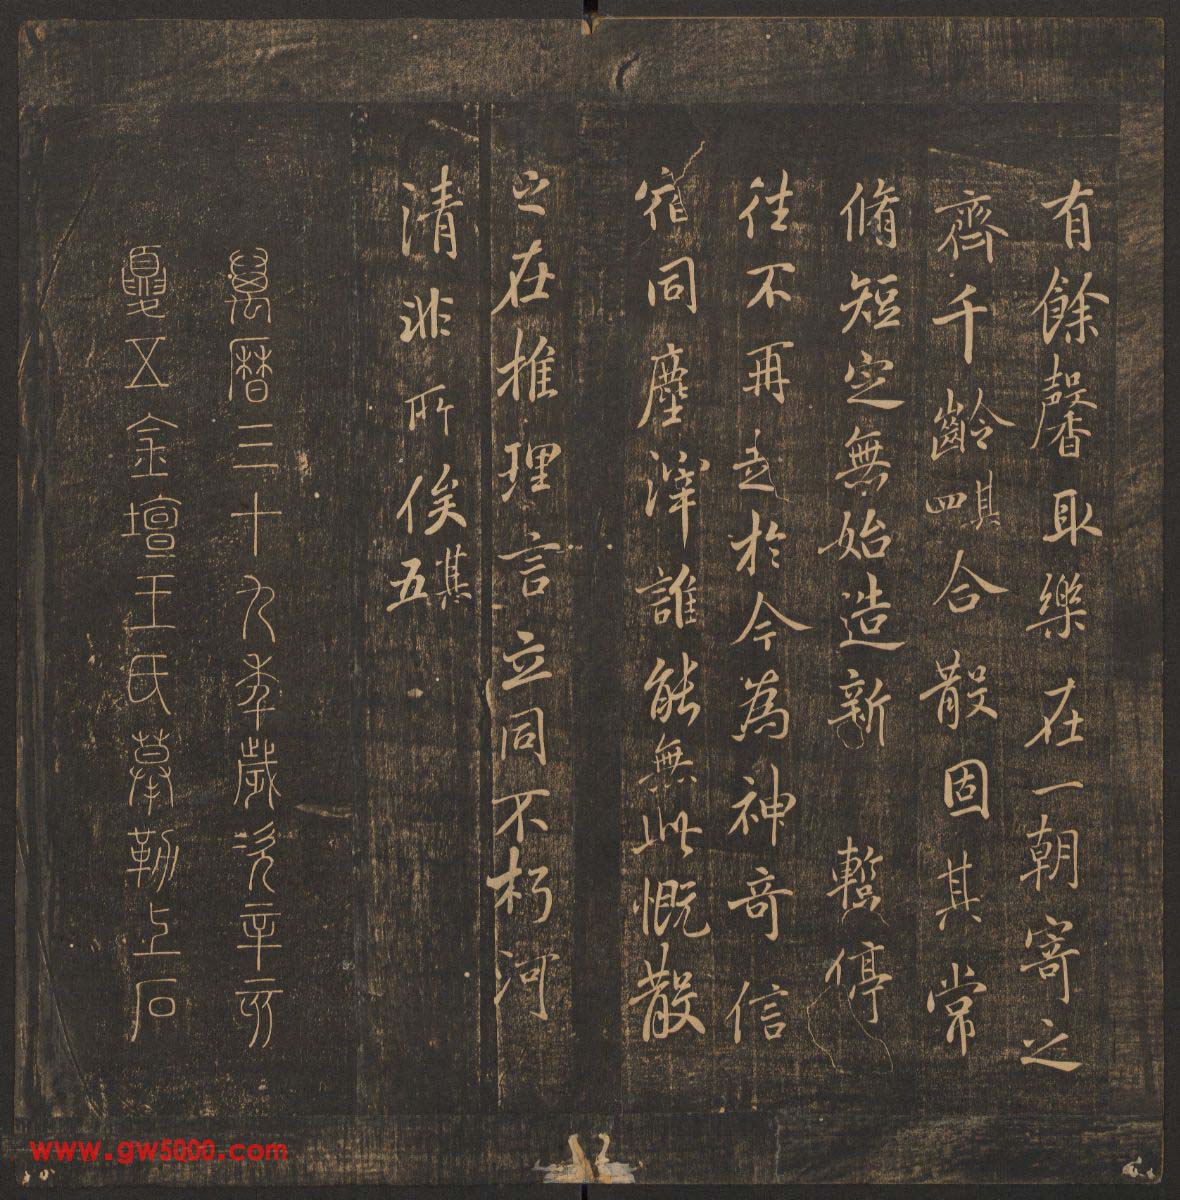 有餘馨取樂在一朝寄之
齊千齡其四合散固其常
脩短定無始造新暫停
往不再走於今為神奇信
宿同塵滓誰能無此慨散
之在推理言立同不朽河
清非所俟其五
萬曆三十九年歲次辛亥
夏五金壇王氏摹勒上石
www.gw5000.com